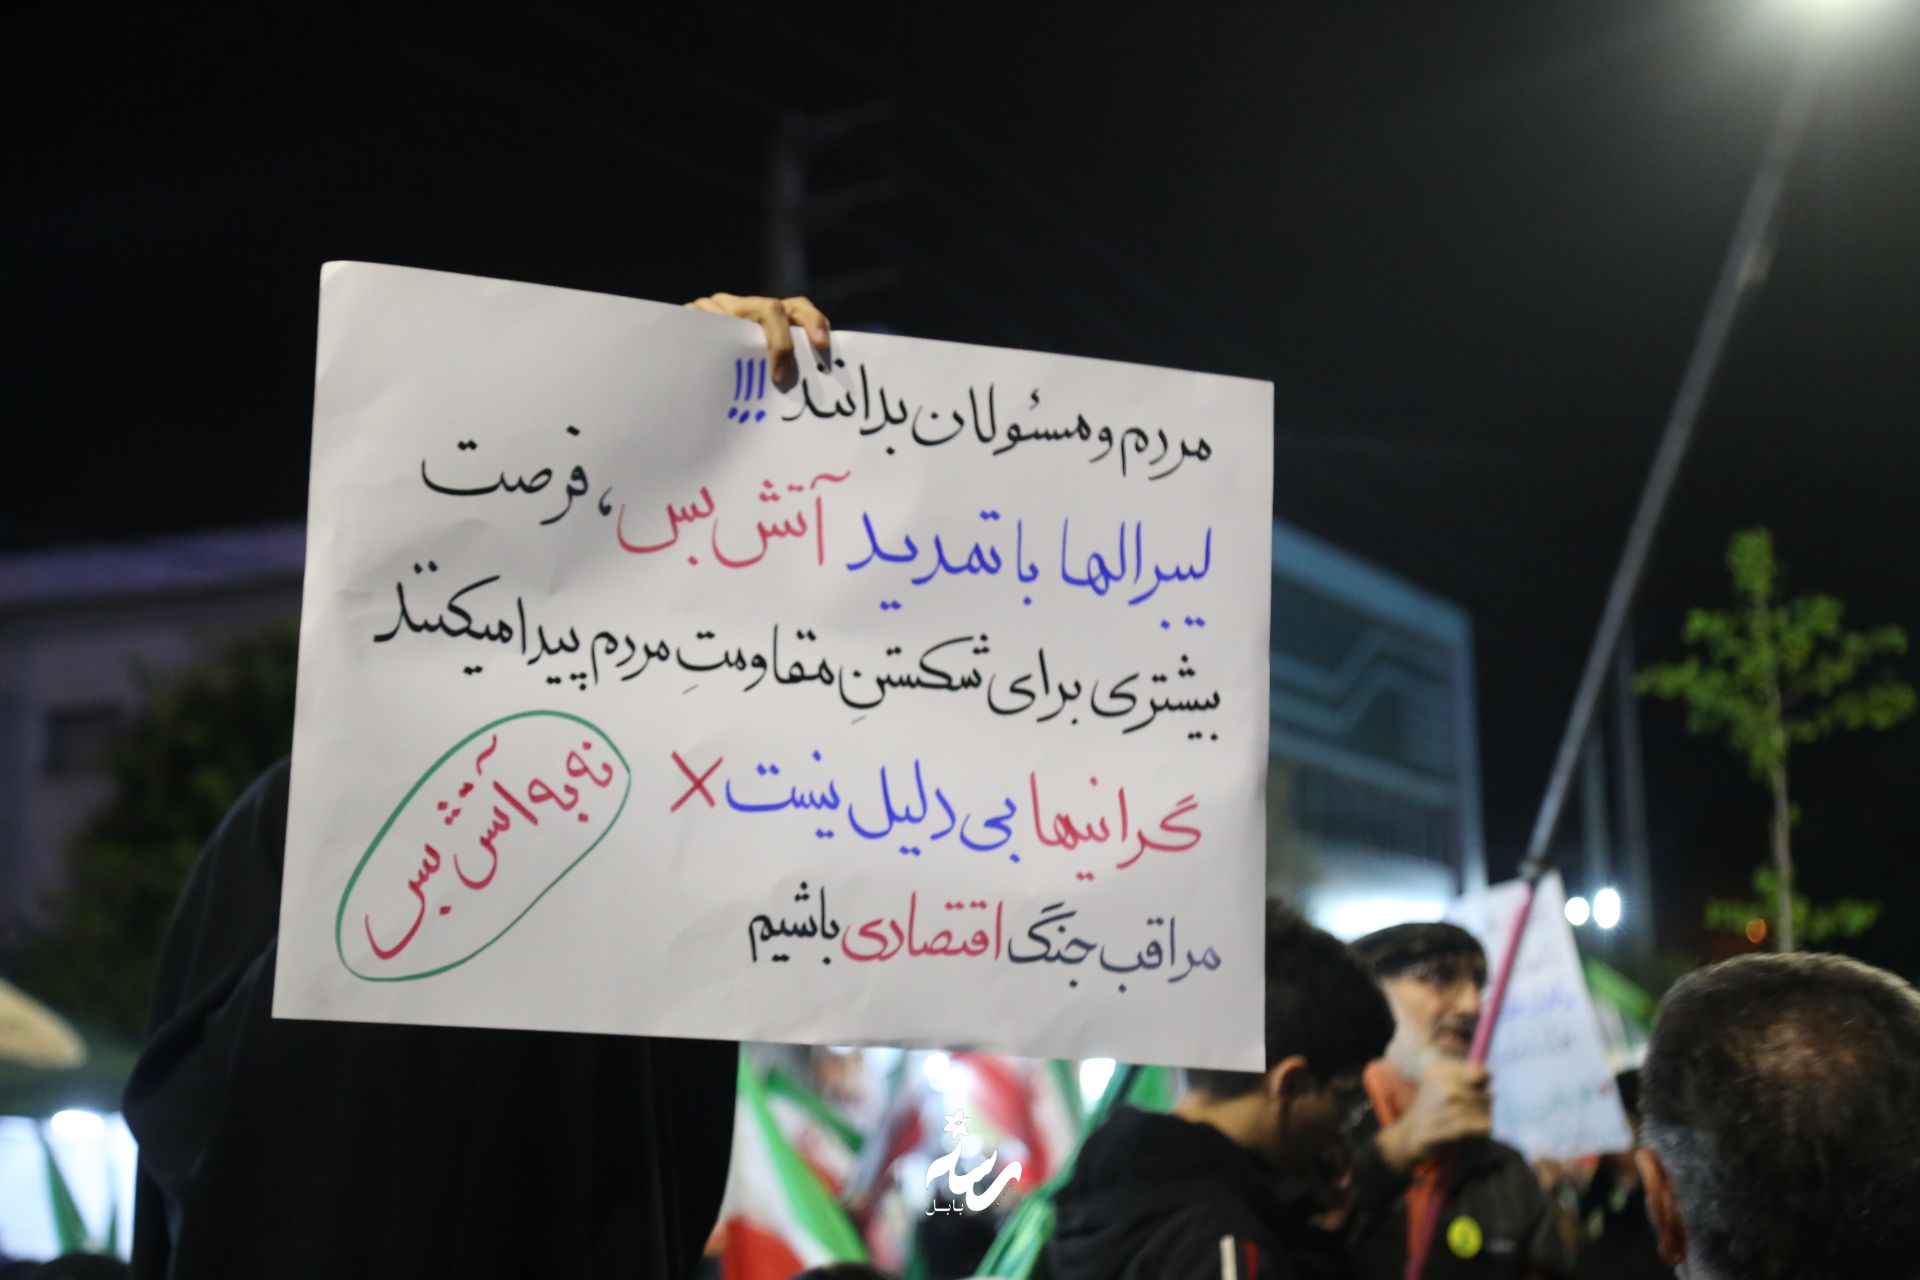 مردم و مسئولان بدانند !!!
لیبرالها با تمدید آتش بس، فرصت
بیشتری برای شکستنِ مقاومتِ مردم پیدا میکنند
گرانیها بی دلیل نیست X
مراقب جنگ اقتصادی باشیم
نه به آتش بس
رسانه
بابل